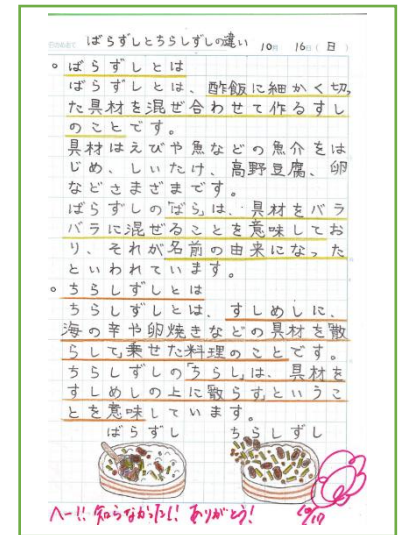 日のめあて ばらずしとちらしずしの違い 10月 16日(日)
○ばらずしとは
ばらずしとは、酢飯に細かく切っ
た具材を混ぜ合わせて作るすし
のことです。
具材はえびや魚などの魚介をは
じめ、しいたけ、高野豆腐、卵
などさまざまです。
ばらずしの「ばら」は、具材をバラ
バラに混ぜることを意味してお
り、それが名前の由来になった
といわれています。
○ちらしずしとは
ちらしずしとは、すしめしに、
海の幸や卵焼きなどの具材を「散
らして」乗せた料理のことです。
ちらしずしの「ちらし」は、具材を
すしめしの上に散らす」というこ
とを意味しています。
ばらずし ちらしずし
へー!!知らなかった!!ありがとう! 10/17